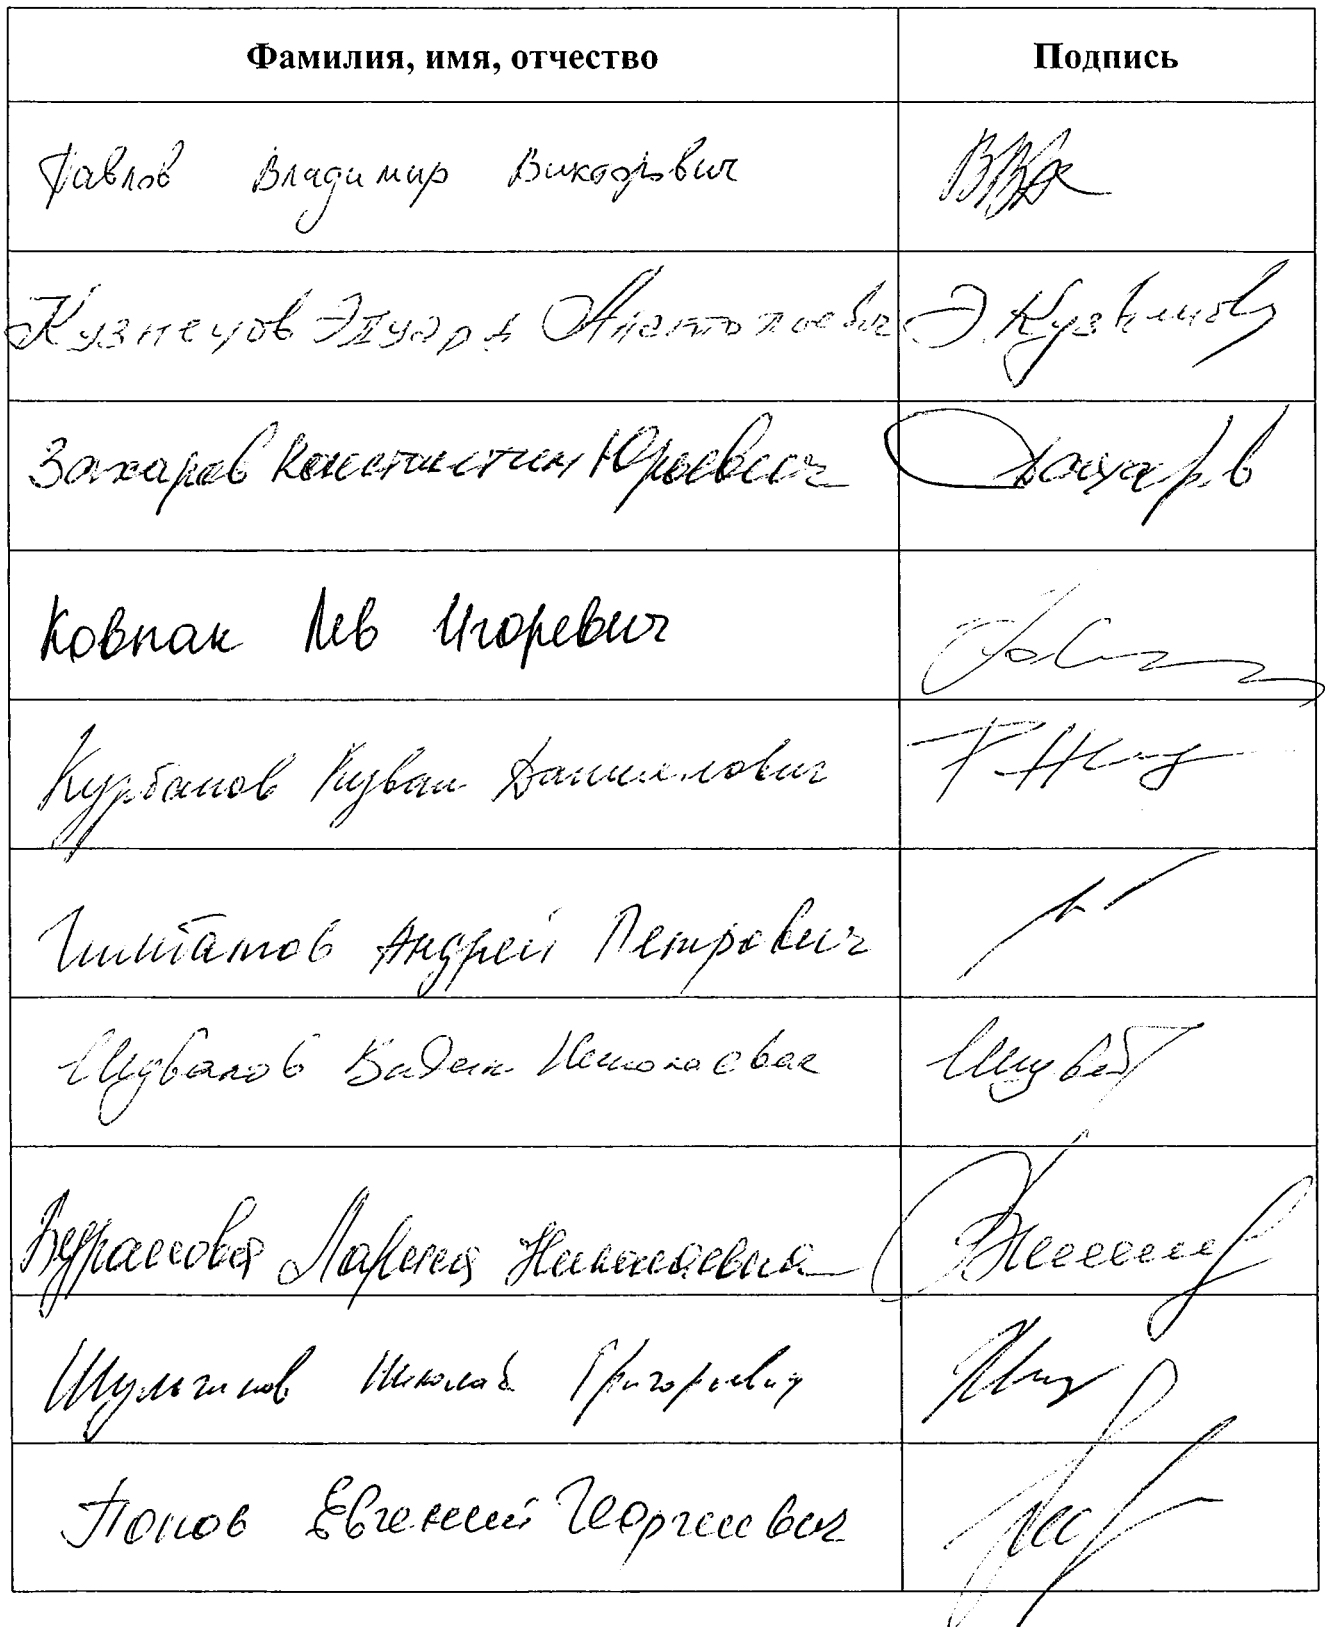 Фамилия, имя, отчество Подпись
Павлов Владимир Викторович
Кузнецов Эдуард Анатольевич Э. Кузнецов
Захаров Константин Юрьевич Захаров
Ковпак Лев Игоревич
Курбанов Ризван Даниялович
Андрей Петрович
Шувалов Вадим Николаевич
Николаевна
Шульгинов Николай Григорьевич
Попов Евгений Георгиевич